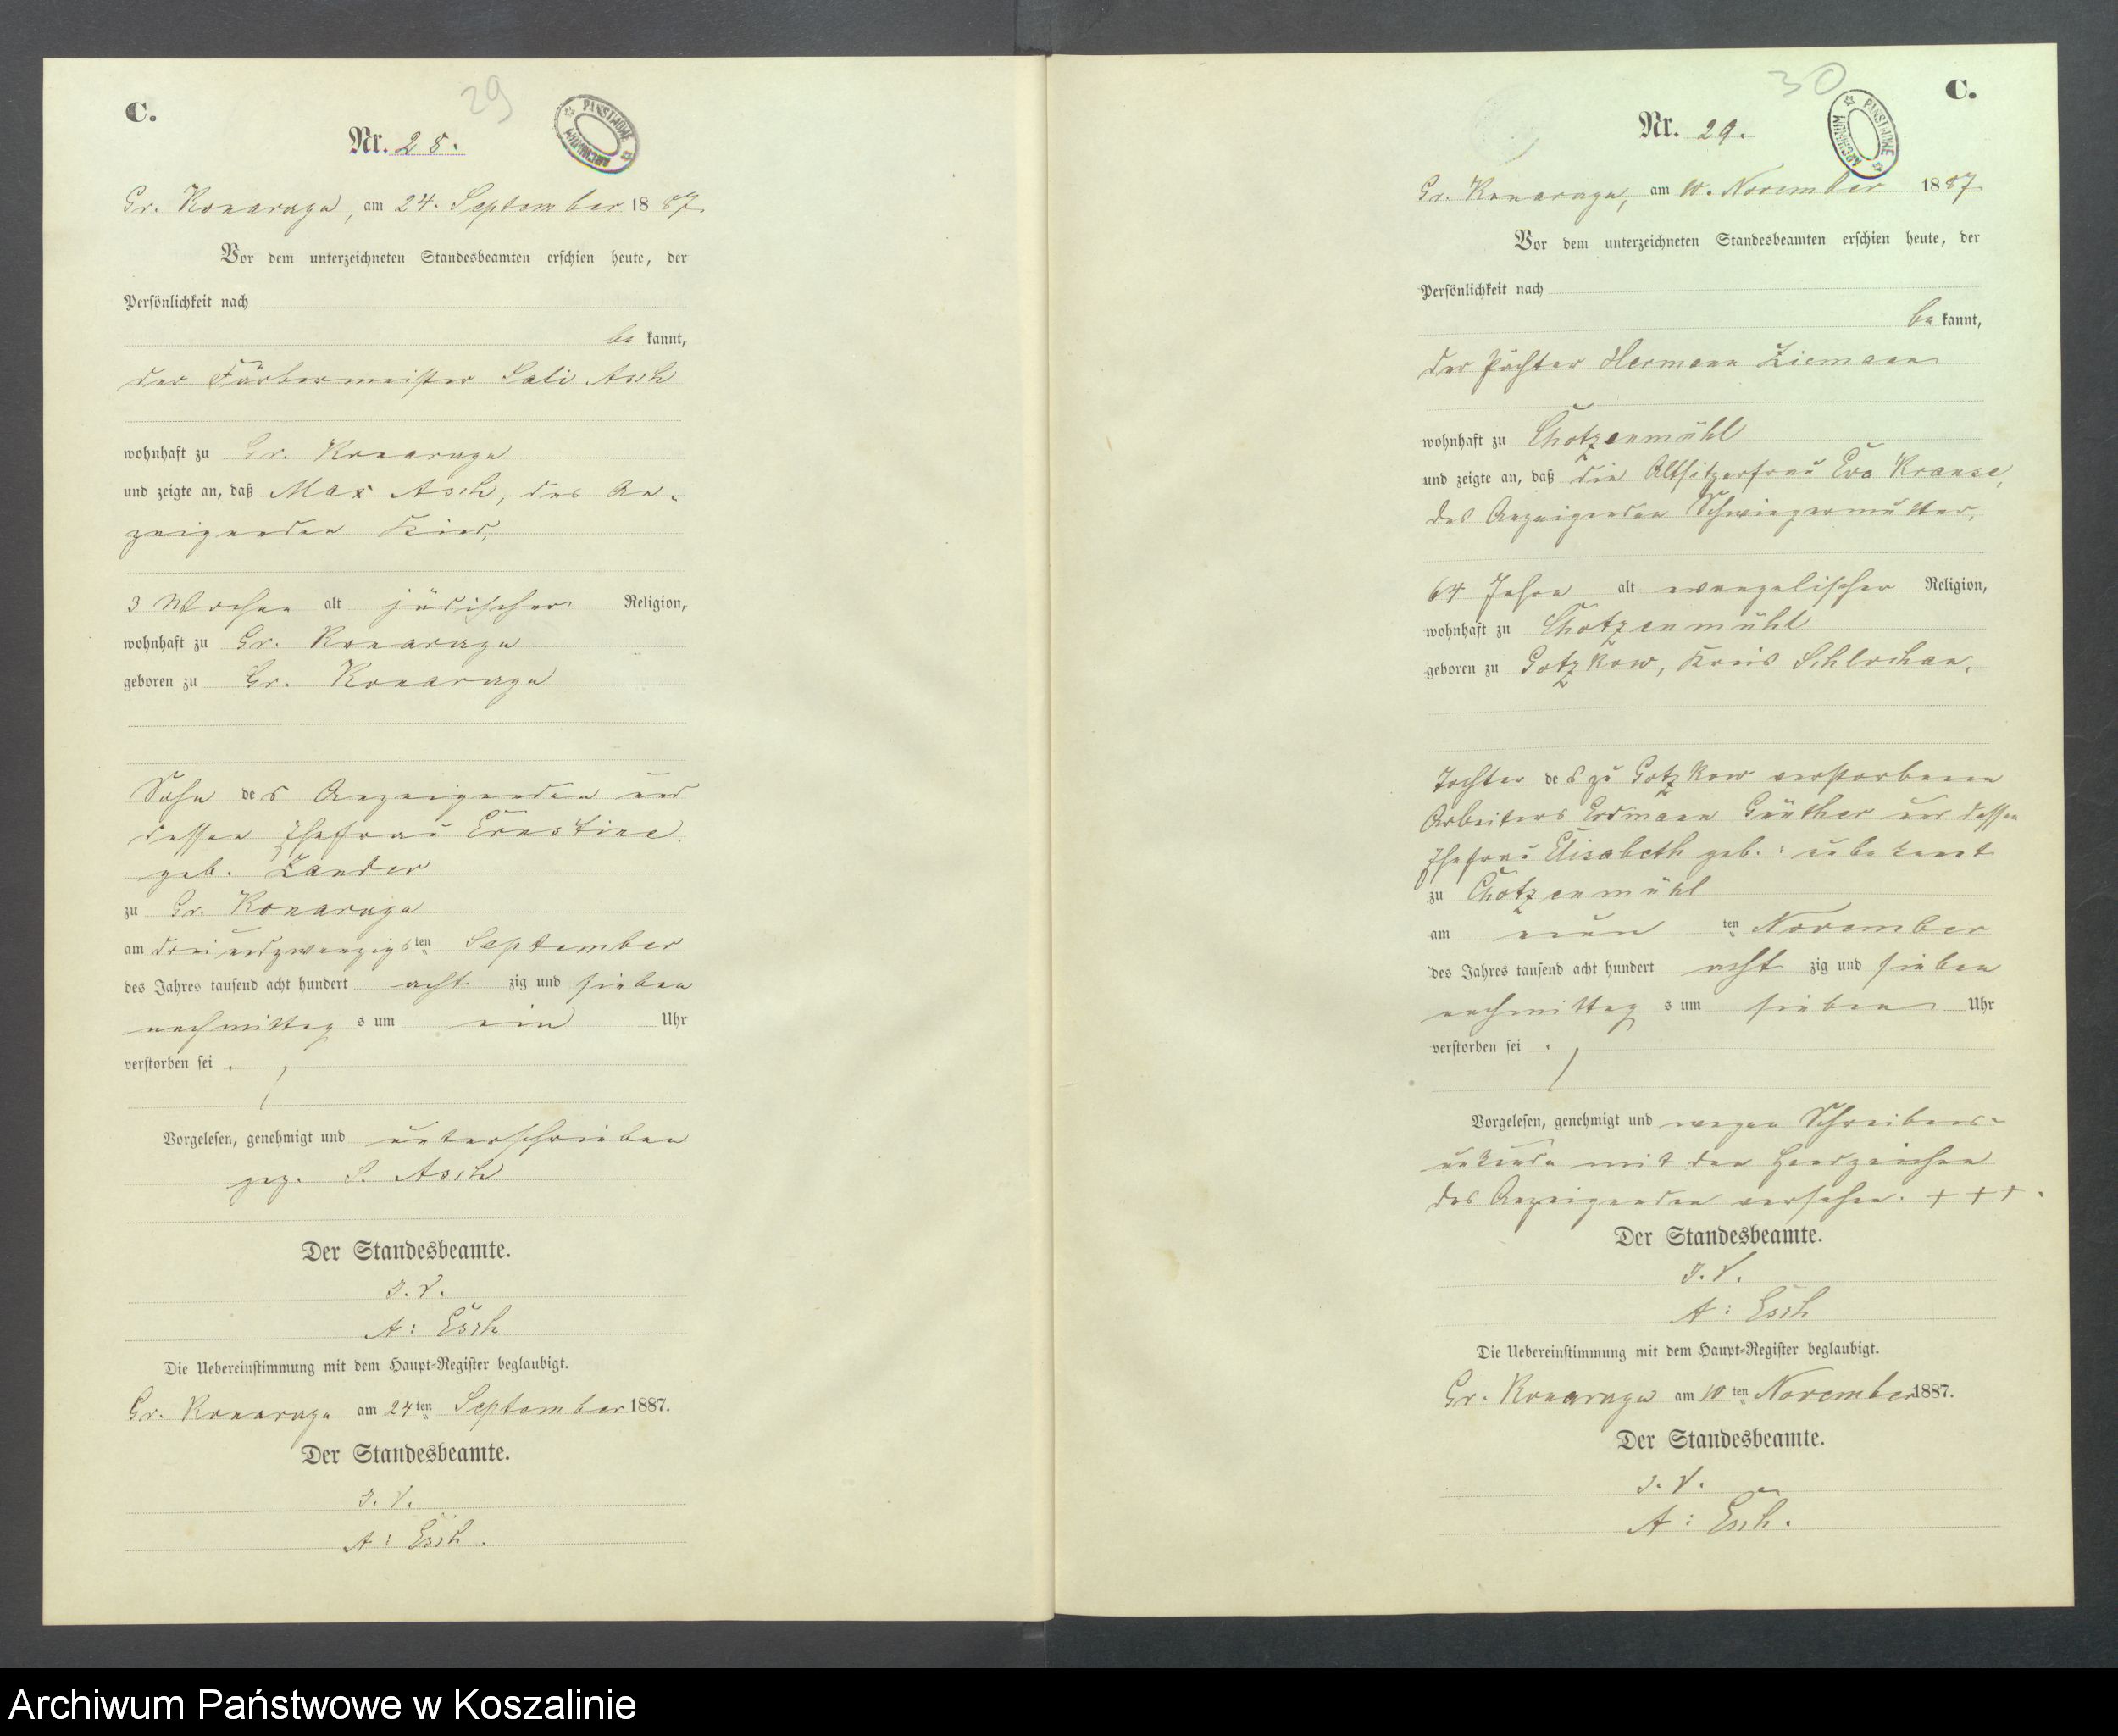 C.
29
Nr. 28.
PAŃSTWOWE
ARCHIWUM
Gr. Konarczyn, am 24. September 1887.
Vor dem unterzeichneten Standesbeamten erschien heute, der
Persönlichkeit nach
be kannt,
der Färbermeister Sali Asch
wohnhaft zu Gr. Konarczyn
und zeigte an, daß Max Asch, des An-
zeigenden Kind,
3 Wochen alt jüdischer Religion,
wohnhaft zu Gr. Konarczyn
geboren zu Gr. Konarczyn
Sohn des Anzeigenden und
dessen Ehefrau Ernstine
geb. Zander
zu Gr. Konarczyn
am dreiundzwanzigsten September
des Jahres tausend acht hundert acht zig und sieben
nachmittag s um ein Uhr
verstorben sei.
Vorgelesen, genehmigt und unterschrieben
gez. S. Asch
Der Standesbeamte.
J. V.
A: Esch
Die Uebereinstimmung mit dem Haupt-Register beglaubigt.
Gr. Konarczyn am 24ten September 1887.
Der Standesbeamte.
J. V.
A: Esch.
30
C.
Nr. 29.
PAŃSTWOWE
ARCHIWUM
Gr. Konarczyn, am 10. November 1887.
Vor dem unterzeichneten Standesbeamten erschien heute, der
Persönlichkeit nach
be kannt,
der Pächter Hermann Ziemann
wohnhaft zu Chotzenmühl
und zeigte an, daß die Altsitzerfrau Eva Krause,
des Anzeigenden Schwiegermutter,
64 Jahre alt evangelischer Religion,
wohnhaft zu Chotzenmühl
geboren zu Gotzkow, Kreis Schlochau,
Tochter des zu Gotzkow verstorbenen
Arbeiters Erdmann Günther und dessen
Ehefrau Elisabeth geb.: unbekannt
zu Chotzenmühl
am neun ten November
des Jahres tausend acht hundert acht zig und sieben
nachmittag s um sieben Uhr
verstorben sei.
Vorgelesen, genehmigt und wegen Schreibens-
unkunde mit den Handzeichen
des Anzeigenden versehen. + + + .
Der Standesbeamte.
J. V.
A: Esch
Die Uebereinstimmung mit dem Haupt-Register beglaubigt.
Gr. Konarczyn am 10ten November 1887.
Der Standesbeamte.
J. V.
A: Esch.
Archiwum Państwowe w Koszalinie